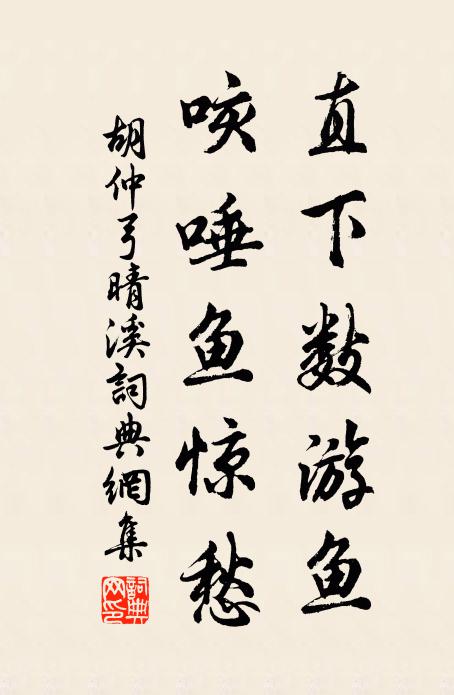 直下数游鱼
咳唾鱼惊愁
胡仲弓晴溪詞典網集
詞典网印